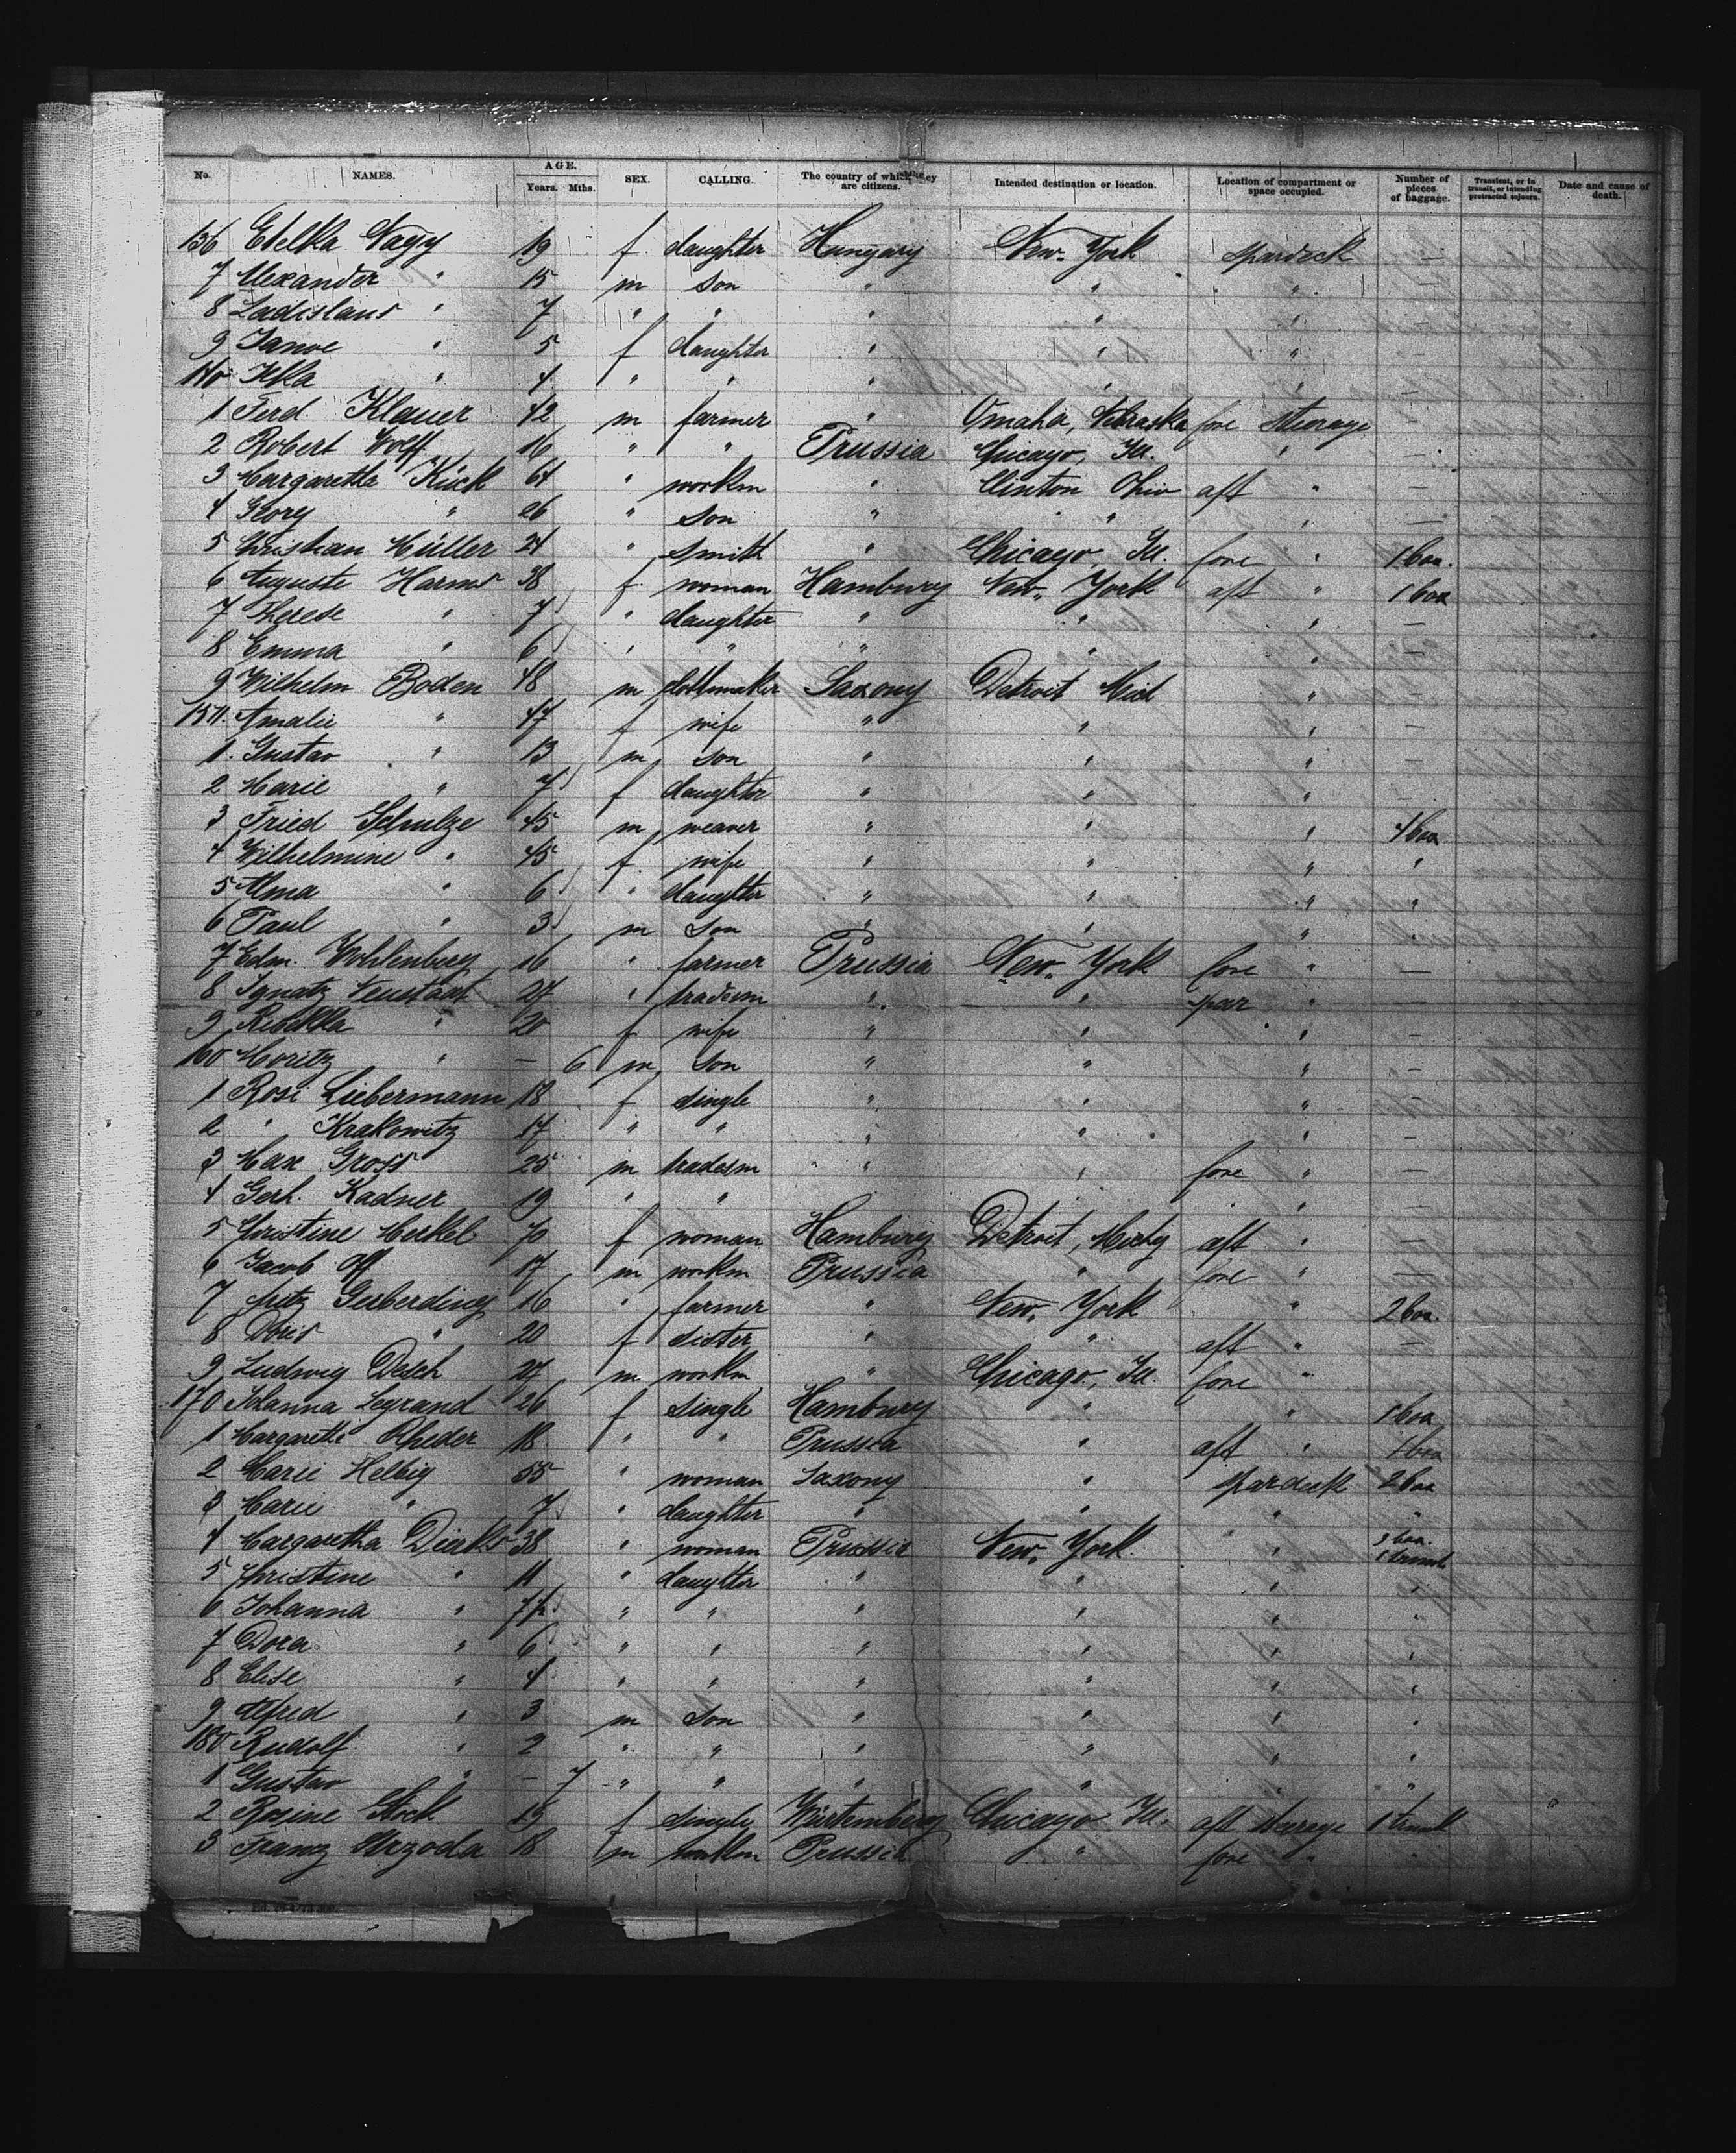 No. NAMES. AGE. Years. Mths. SEX. CALLING. The country of which they are citizens. Intended destination or location. Location of compartment or space occupied. Number of pieces of baggage. Transient, or in transit, or intending protracted sojourn. Date and cause of death.
136 Etelka Nagy 19 f. daughter Hungary New-York spardeck —
7 Alexander " 15 m son " " " —
8 Ladislaus " 7 " " " " " —
9 " 5 f daughter " " " —
140 " 4 " " " " " —
1 Ferd. Klauer 42 m farmer " Omaha, Nebraska fore steerage
2 Robert Wolff 16 " " Prussia Chicago, Ill. " —
3 Margaretha Kück 64 " workm " Clinton Ohio aft " —
4 Georg " 26 " son " " " —
5 Christian Müller 24 " smith " Chicago, Ill. fore " 1 box.
6 Auguste Harms 38 f. woman Hamburg New-York aft " 1 box
7 Therese " 7 " daughter " " " —
8 Emma " 6 " " " " " —
9 Wilhelm Boden 48 m clothmaker Saxony Detroit Mich " —
150. Amalie " 47 f wife " " " —
1. Gustav " 13 m son " " " —
2 Marie " 7 f daughter " " " —
3 Fried Schulze 45 m weaver " " " 4 box
4 Wilhelmine " 45 f. wife " " " "
5 Alma " 6 " daughter " " " "
6 Paul " 3 m son " " " "
7 Edm. Wohlenberg 16 " farmer Prussia New-York fore " —
8 Ignatz Neustadt 27 " tradesm " " spar "
9 " 20 f wife " " " —
160 Moritz " — 6 m son " " " —
1 Rosi Liebermann 18 f single " " " —
2 " Krakowitz 17 " " " " " —
3 Max Gross 25 m tradesm " " fore " —
4 Gerh. Kadner 19 " " " " " —
5 Christine Merkel 70 f woman Hamburg Detroit, aft " —
6 Jacob Off 17 m workm Prussia " fore " —
7 Fritz Gerberding 16 " farmer " New-York " " 2 box.
8 Doris " 20 f sister " " aft " —
9 Ludwig Desch 27 m workm " Chicago, Ill. fore "
170 Johanna Legrand 26 f single Hamburg " " 1 box
1 Margarethe Rheder 18 " " Prussia " aft " 1 box
2 Marie Helbig 55 " woman Saxony " spardeck 2 box
3 Marie " 7 " daughter " " " "
4 Margaretha Dierks 38 " woman Prussia New-York. " 3 box. 1 trunk
5 Christine " 11 " daughter " " " "
6 Johanna " 7½ " " " " " "
7 Dora " 6 " " " " " "
8 Elise " 4 " " " " " "
9 Alfred " 3 m son " " " "
180 Rudolf " 2 " " " " " "
1 Gustav " — 7 " " " " " "
2 Rosine Stock 19 f single Würtemberg Chicago Ill. aft steerage 1 trunk
3 Franz 18 m workm Prussia " fore "